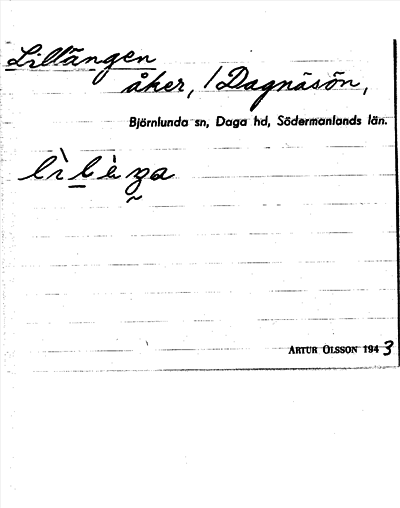 Lillängen
åker, / Dagnäsön,
Björnlunda sn, Daga hd, Södermanlands län.
ARTUR OLSSON 1943